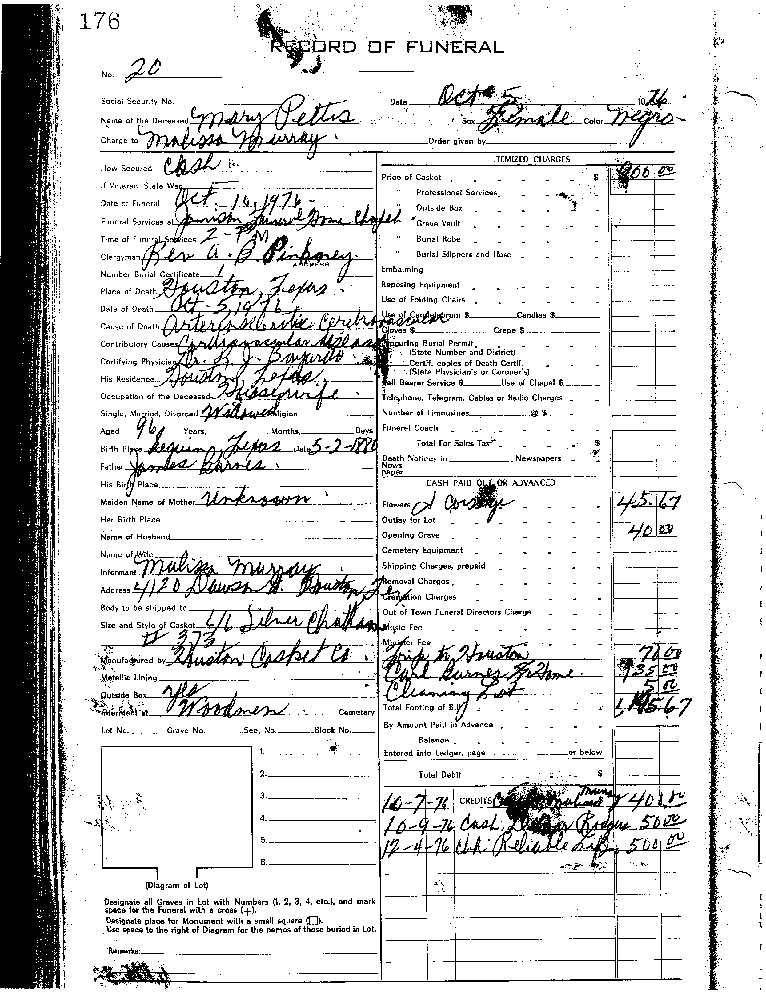 176
RECORD OF FUNERAL
No. 20
Social Security No.
Date Oct 5 1976
Name of the Deceased Mary Pettis Sex Female Color Negro
Charge to Malissa Murray Order given by
How Secured Cash
If Veteran, State War
Date of Funeral Oct. 16, 1976
Funeral Services at Funeral Home Chapel
Time of Funeral Services 2 - PM
Clergyman Rev. A. B. Pinkney
Number Burial Certificate
Place of Death Houston, Texas
Date of Death Oct - 5, 1976
Cause of Death Cerebrovascular
Contributory Causes Cardiovascular disease
Certifying Physician Dr.
His Residence Houston, Texas
Occupation of the Deceased Housewife
Single, Married, Divorced Widowed Religion
Aged 96 Years, Months, Days
Birth Place Seguin, Texas Date 5-2-1880
Father James Barnes
His Birth Place
Maiden Name of Mother Unknown
Her Birth Place
Name of Husband
Name of Wife
Informant Malissa Murray
Address 4120 Dawson St. Houston
Body to be shipped to
Size and Style of Casket 6/6 Silver
# 373
Manufactured by Houston Casket Co.
Metallic Lining
Outside Box yes
Interment at Woodmen Cemetery
Lot No. Grave No. Sec. No. Block No.
1.
2.
3.
4.
5.
6.
(Diagram of Lot)
Designate all Graves in Lot with Numbers (1, 2, 3, 4, etc.), and mark
space for the Funeral with a cross (+).
Designate place for Monument with a small square (□).
Use space to the right of Diagram for the names of those buried in Lot.
Remarks:
ITEMIZED CHARGES
Price of Casket $ 900.00
" Professional Services
" Outside Box
" Grave Vault
" Burial Robe
" Burial Slippers and Hose
Embalming
Reposing Equipment
Use of Folding Chairs
Use of Candelabrum $ Candles $
Gloves $ Crepe $
Procuring Burial Permit
(State Number and District)
Certif. copies of Death Certif.
(State Physician's or Coroner's)
Pall Bearer Service $ Use of Chapel $
Telephone, Telegram, Cables or Radio Charges
Number of Limousines @ $
Funeral Coach
Total For Sales Tax $
Death Notices in Newspapers
News
paper
CASH PAID OUT OR ADVANCED
Flowers & Corsage 45.67
Outlay for Lot
Opening Grave 40 00
Cemetery Equipment
Shipping Charges, prepaid
Removal Charges
Cremation Charges
Out of Town Funeral Directors Charge
Music Fee
Minister Fee
Trip to Houston 70 00
Carl Barnes F Home 135 00
Cleaning Lot 5 00
Total Footing of Bill
By Amount Paid in Advance
Balance
Entered into Ledger, page or below
Total Debit $
10-7-76 CREDITS
10-9-76 Cash 50 00
12-4-76 Chk. Reliable Life 500 00